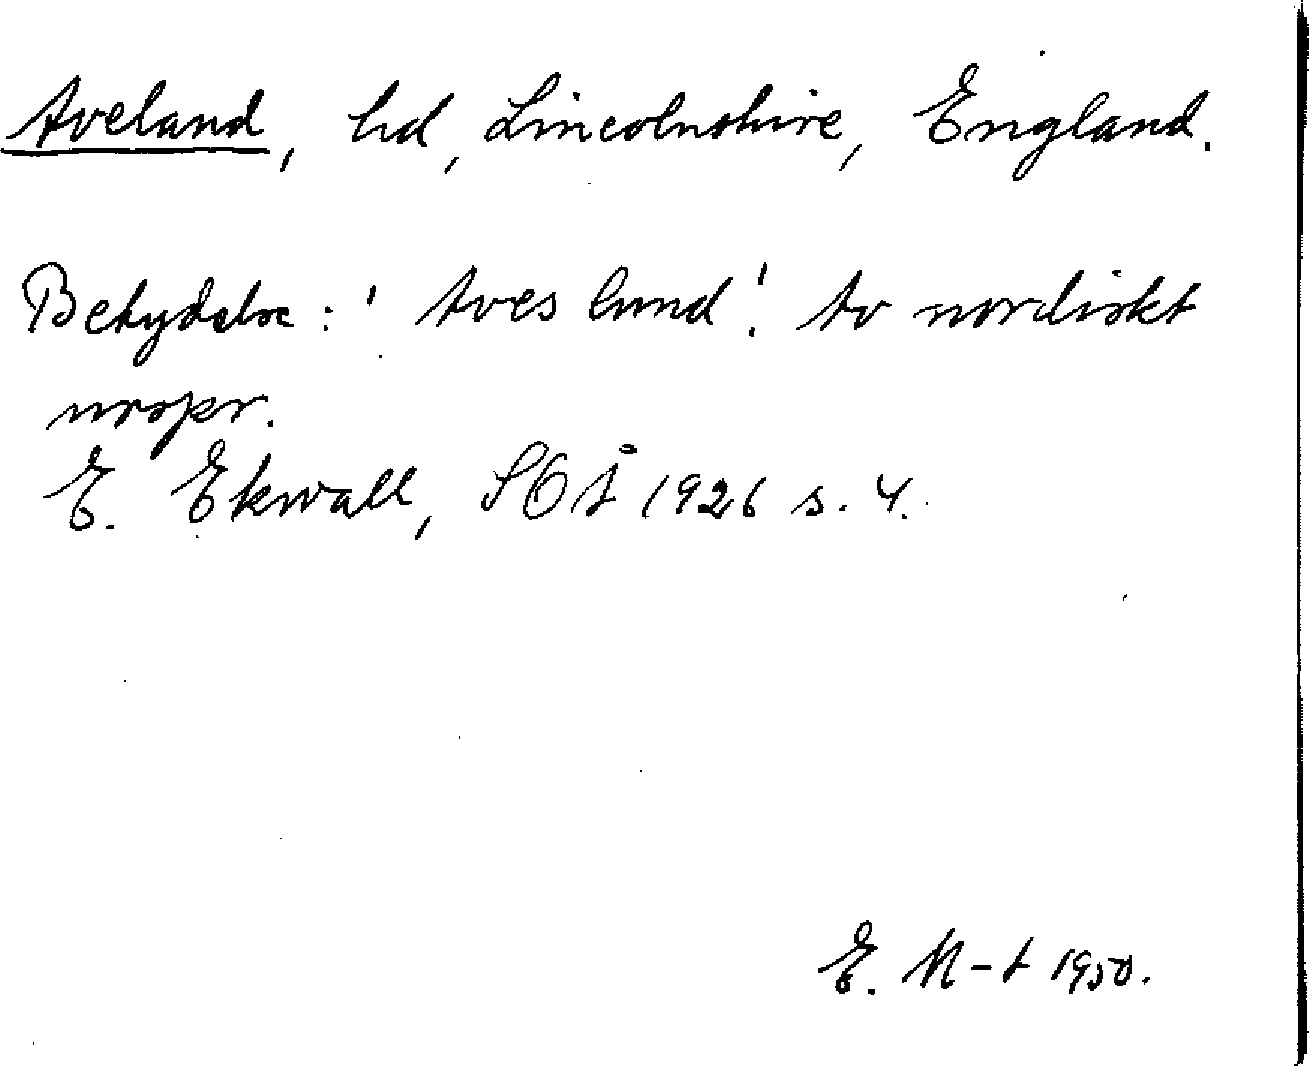 Aveland, hd, Lincolnshire, England.
Betydelse: 'Aves lund'. Av nordiskt
urspr.
E. Ekwall, SOÅ 1926 s. 4.
E. M-t 1950.